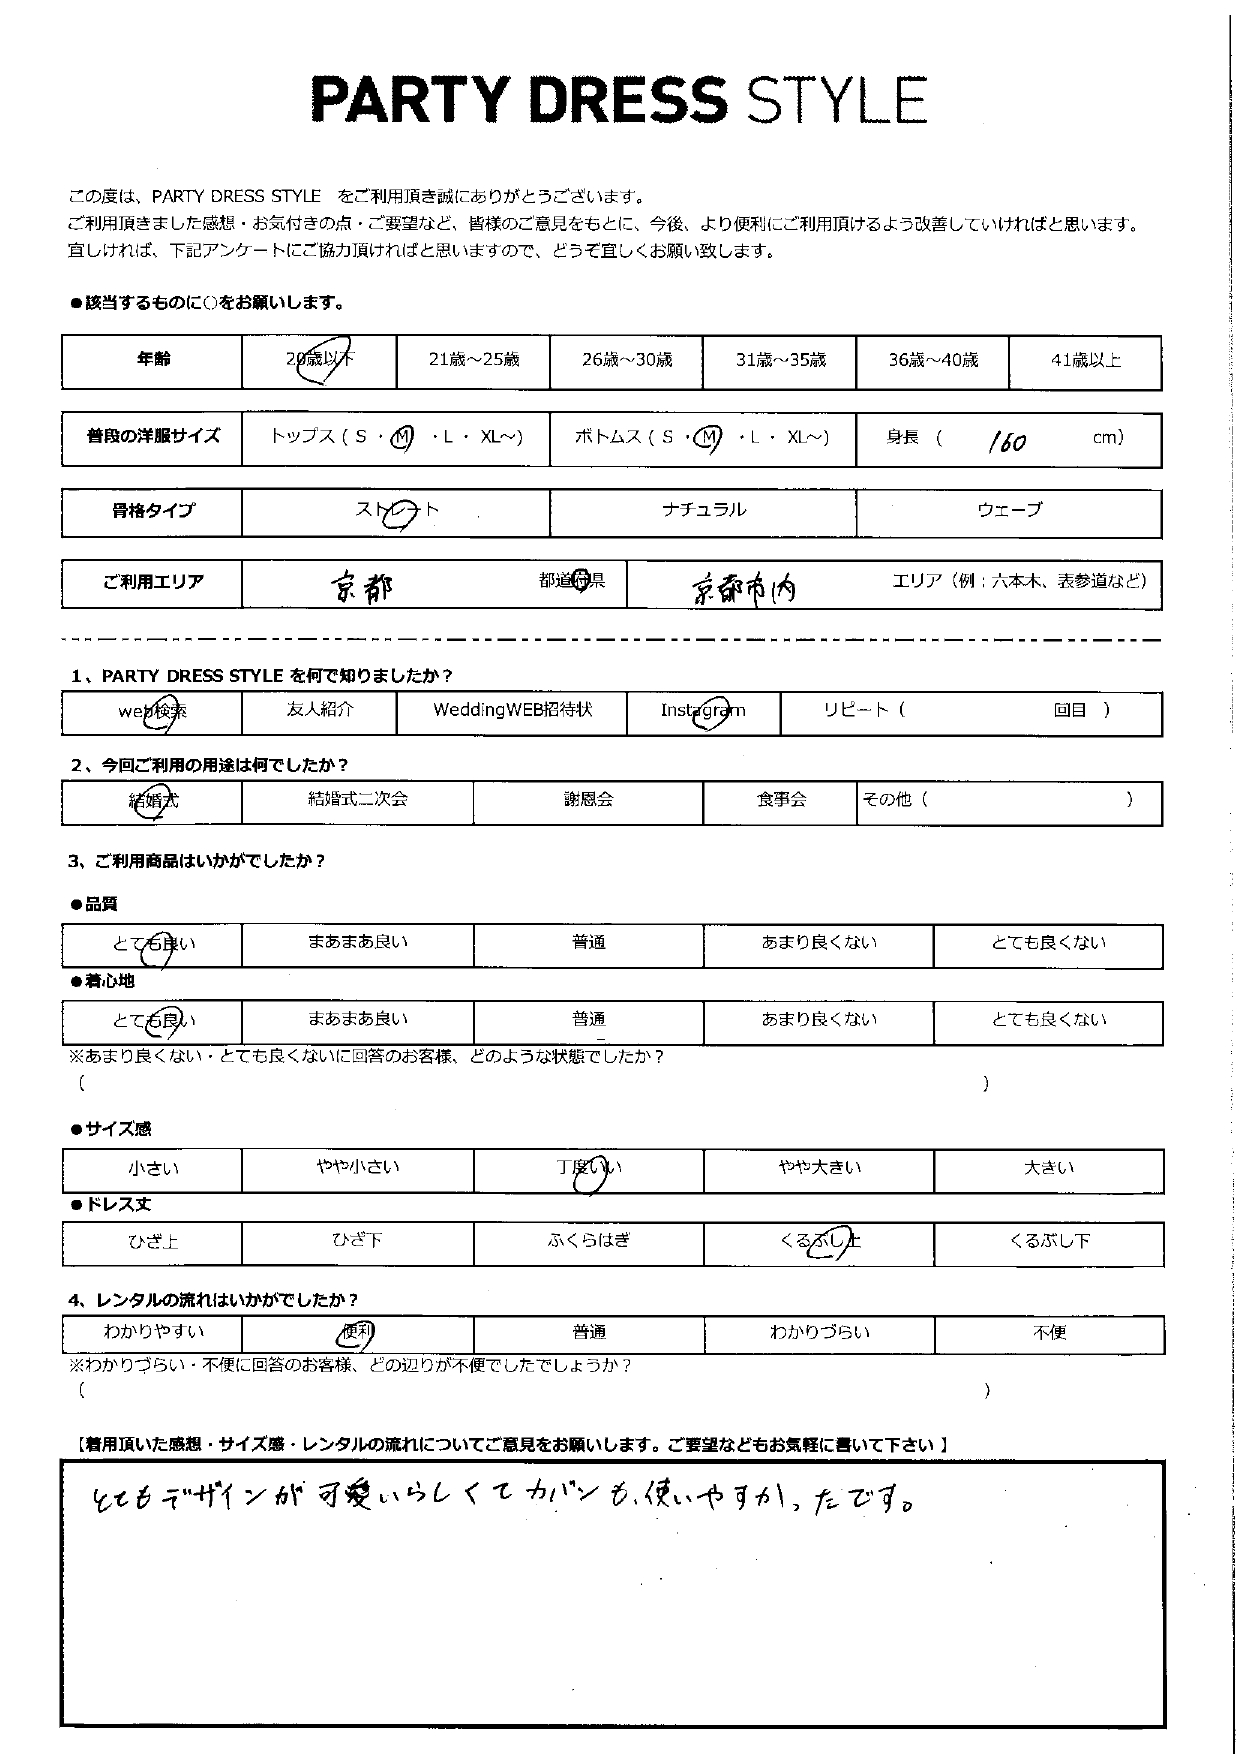 PARTY DRESS STYLE
この度は、PARTY DRESS STYLE をご利用頂き誠にありがとうございます。
ご利用頂きました感想・お気付きの点・ご要望など、皆様のご意見をもとに、今後、より便利にご利用頂けるよう改善していければと思います。
宜しければ、下記アンケートにご協力頂ければと思いますので、どうぞ宜しくお願い致します。
●該当するものに○をお願いします。
年齢 20歳以下 21歳～25歳 26歳～30歳 31歳～35歳 36歳～40歳 41歳以上
普段の洋服サイズ トップス ( S ・ M ・L ・ XL～) ボトムス ( S ・ M ・L ・ XL～) 身長 ( 160 cm)
骨格タイプ ストレート ナチュラル ウェーブ
ご利用エリア 京都 都道府県 京都市内 エリア（例：六本木、表参道など）
1、PARTY DRESS STYLE を何で知りましたか？
web検索 友人紹介 WeddingWEB招待状 Instagram リピート（ 回目 ）
2、今回ご利用の用途は何でしたか？
結婚式 結婚式二次会 謝恩会 食事会 その他（ ）
3、ご利用商品はいかがでしたか？
●品質
とても良い まあまあ良い 普通 あまり良くない とても良くない
●着心地
とても良い まあまあ良い 普通 あまり良くない とても良くない
※あまり良くない・とても良くないに回答のお客様、どのような状態でしたか？
( )
●サイズ感
小さい やや小さい 丁度いい やや大きい 大きい
●ドレス丈
ひざ上 ひざ下 ふくらはぎ くるぶし上 くるぶし下
4、レンタルの流れはいかがでしたか？
わかりやすい 便利 普通 わかりづらい 不便
※わかりづらい・不便に回答のお客様、どの辺りが不便でしたでしょうか？
( )
【着用頂いた感想・サイズ感・レンタルの流れについてご意見をお願いします。ご要望などもお気軽に書いて下さい 】
とてもデザインが可愛いらしくてカバンも、使いやすかったです。